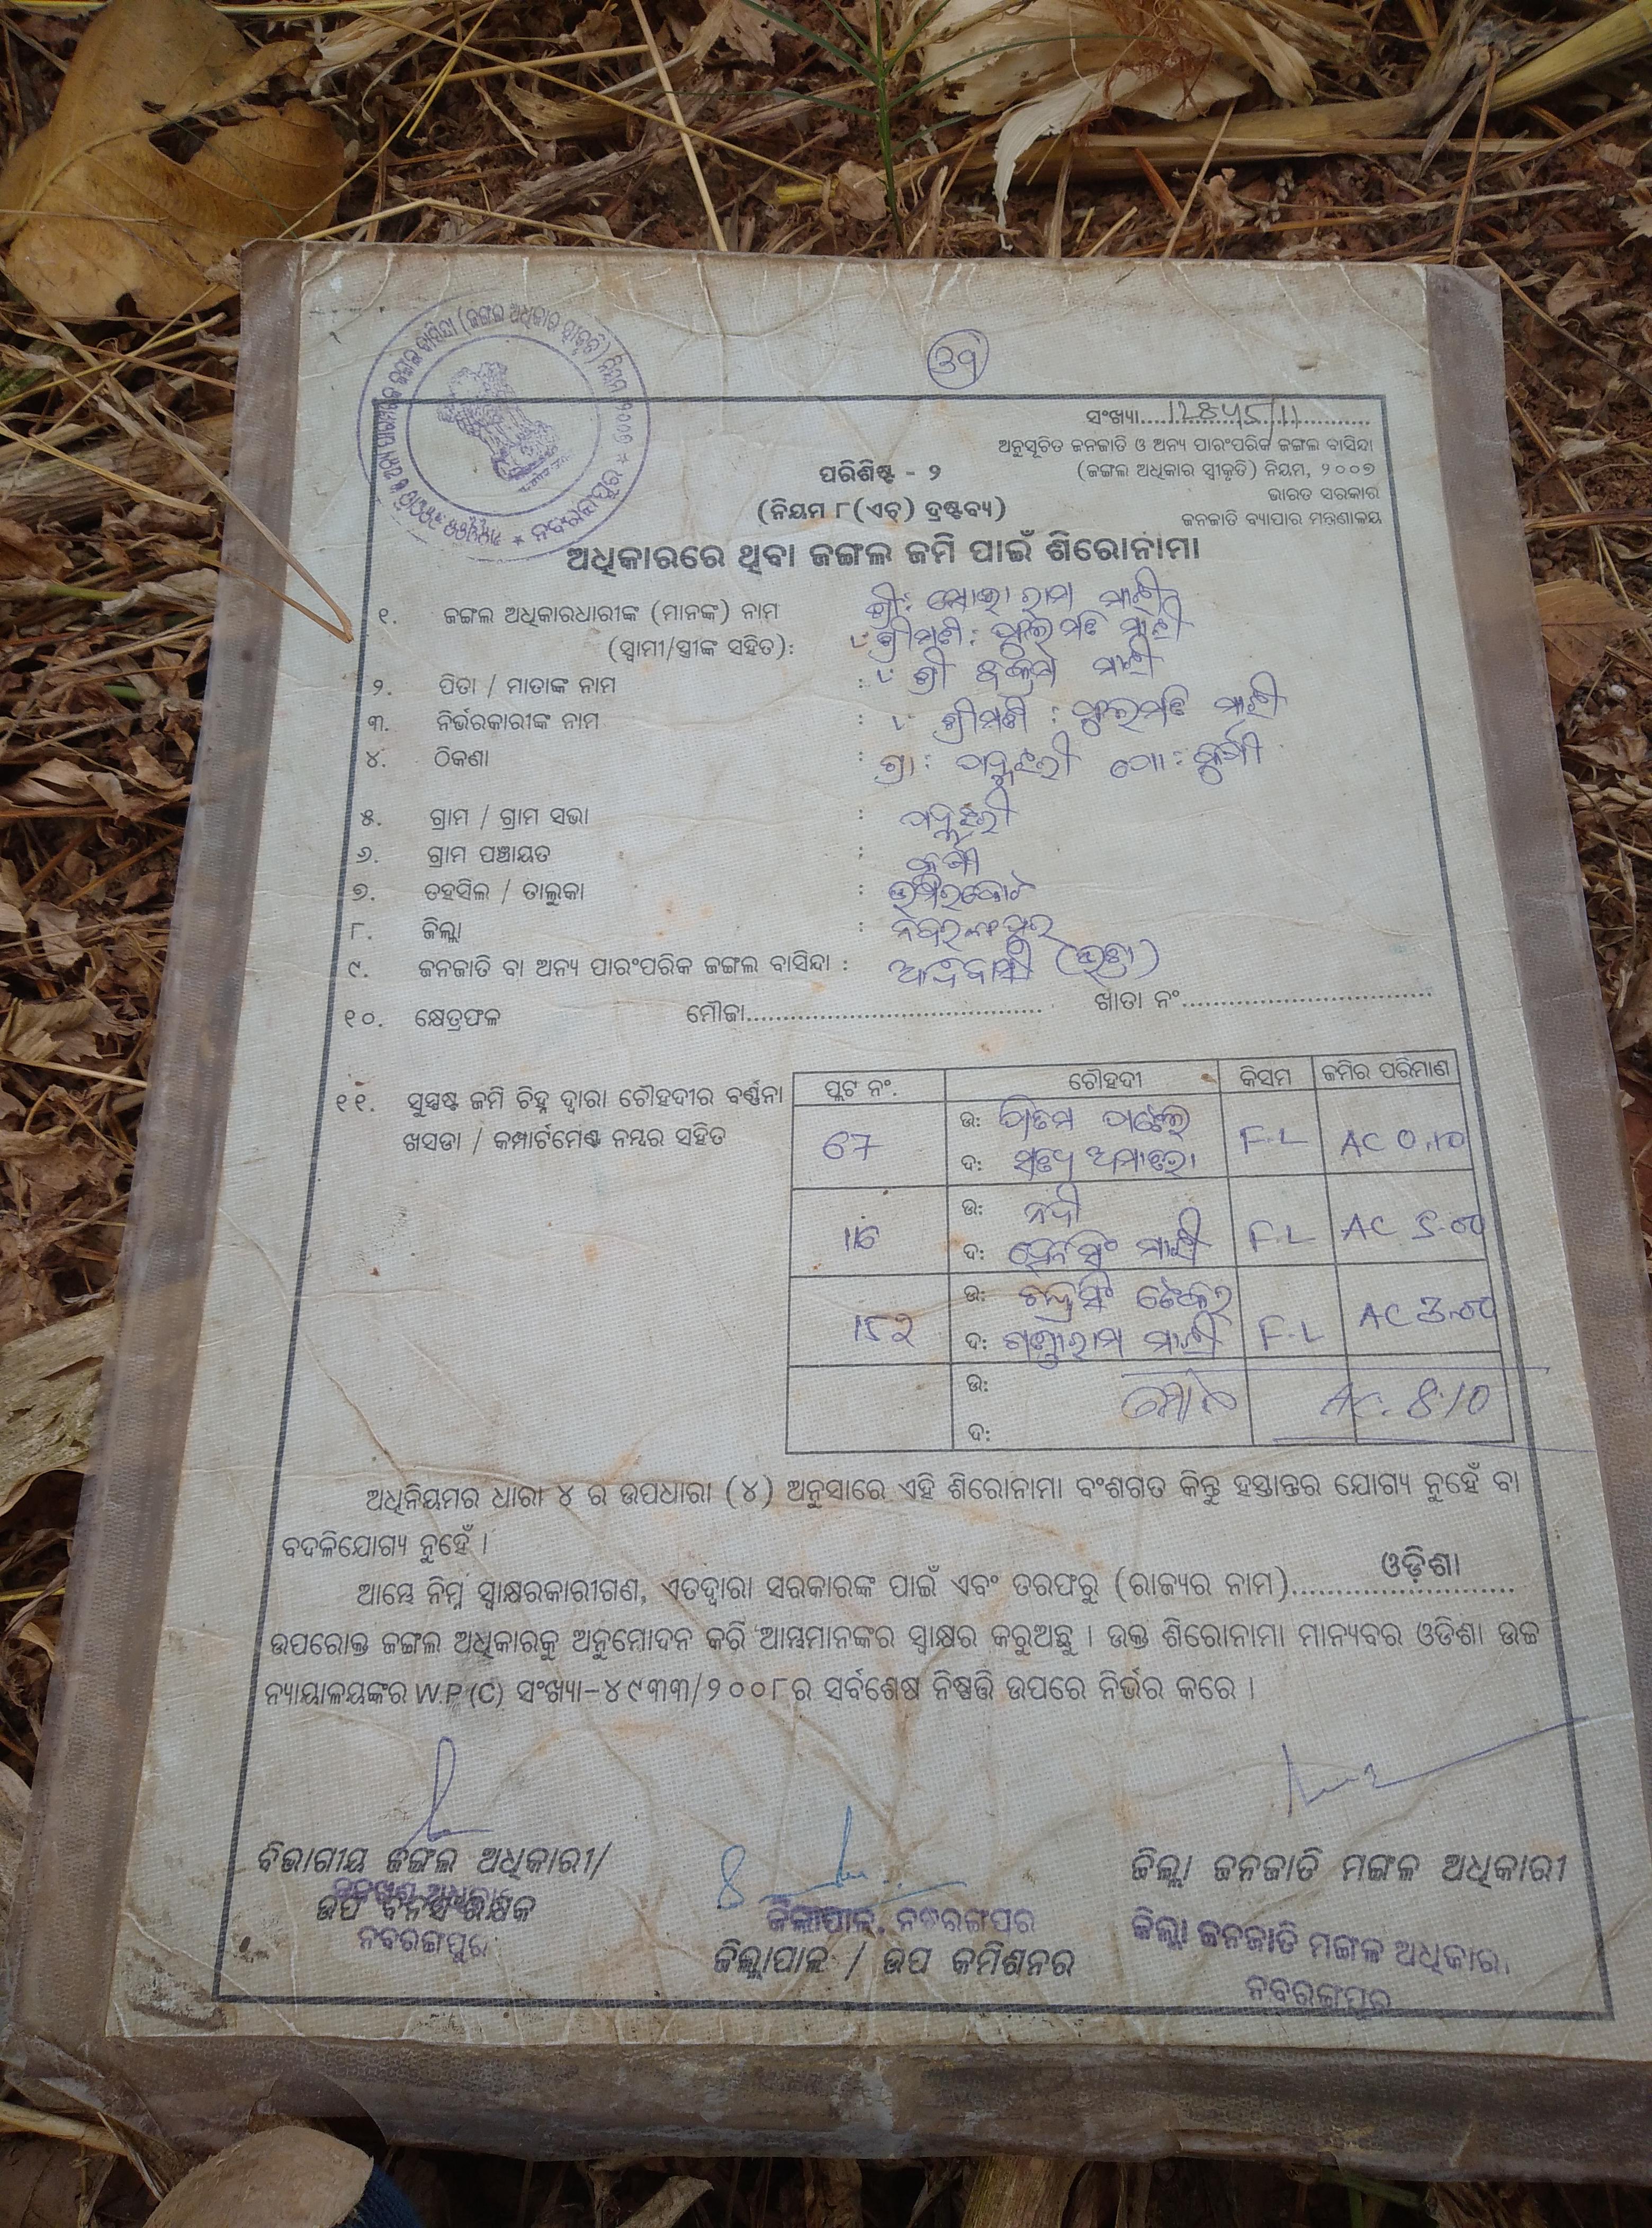 ସଂଖ୍ୟା
ଅନୁସୂଚିତ ଜନଜାତି ଓ ଅନ୍ୟ ପାରଂପରିକ ଜଙ୍ଗଲ ବାସିନ୍ଦା
(ଜଙ୍ଗଲ ଅଧିକାର ସ୍ୱୀକୃତି) ନିୟମ, ୨୦୦୭
ଭାରତ ସରକାର
ଜନଜାତି ବ୍ୟାପାର ମନ୍ତ୍ରଣାଳୟ
ପରିଶିଷ୍ଟ - ୨
(ନିୟମ ୮(ଏଚ୍) ଦ୍ରଷ୍ଟବ୍ୟ)
ଅଧିକାରରେ ଥିବା ଜଙ୍ଗଲ ଜମି ପାଇଁ ଶିରୋନାମା
୧. ଜଙ୍ଗଲ ଅଧିକାରଧାରୀଙ୍କ (ମାନଙ୍କ) ନାମ ଶ୍ରୀ: ରାମ ମାଝୀ
(ସ୍ୱାମୀ/ସ୍ତ୍ରୀଙ୍କ ସହିତ): ଶ୍ରୀମତୀ: ଫୁଲମତି ମାଝୀ
୨. ପିତା / ମାତାଙ୍କ ନାମ : ଶ୍ରୀ ମାଝୀ
୩. ନିର୍ଭରକାରୀଙ୍କ ନାମ : ଶ୍ରୀମତୀ : ଫୁଲମତି ମାଝୀ
୪. ଠିକଣା : ଗ୍ରା: ପୋ:
୫. ଗ୍ରାମ / ଗ୍ରାମ ସଭା :
୬. ଗ୍ରାମ ପଞ୍ଚାୟତ :
୭. ତହସିଲ / ତାଲୁକା : ଉମରକୋଟ
୮. ଜିଲ୍ଲା : ନବରଙ୍ଗପୁର
୯. ଜନଜାତି ବା ଅନ୍ୟ ପାରଂପରିକ ଜଙ୍ଗଲ ବାସିନ୍ଦା : ଆଦିବାସୀ
୧୦. କ୍ଷେତ୍ରଫଳ ମୌଜା........ ଖାତା ନଂ........
୧୧. ସୁସ୍ପଷ୍ଟ ଜମି ଚିହ୍ନ ଦ୍ୱାରା ଚୌହଦୀର ବର୍ଣ୍ଣନା
ଖସଡା / କମ୍ପାର୍ଟମେଣ୍ଟ ନମ୍ବର ସହିତ
ପ୍ଲଟ ନଂ. ଚୌହଦୀ କିସମ ଜମିର ପରିମାଣ
67 ଉ: F.L AC 0.10
ଦ:
116 ଉ: ନଦୀ F.L AC 5.00
ଦ: ମାଝୀ
152 ଉ: F.L AC 3.00
ଦ: ମାଝୀ
ଉ: ମୋଟ AC. 8.10
ଦ:
ଅଧିନିୟମର ଧାରା ୪ ର ଉପଧାରା (୪) ଅନୁସାରେ ଏହି ଶିରୋନାମା ବଂଶଗତ କିନ୍ତୁ ହସ୍ତାନ୍ତର ଯୋଗ୍ୟ ନୁହେଁ ବା
ବଦଳିଯୋଗ୍ୟ ନୁହେଁ ।
ଆମ୍ଭେ ନିମ୍ନ ସ୍ୱାକ୍ଷରକାରୀଗଣ, ଏତଦ୍ୱାରା ସରକାରଙ୍କ ପାଇଁ ଏବଂ ତରଫରୁ (ରାଜ୍ୟର ନାମ) ଓଡ଼ିଶା
ଉପରୋକ୍ତ ଜଙ୍ଗଲ ଅଧିକାରକୁ ଅନୁମୋଦନ କରି ଆମ୍ଭମାନଙ୍କର ସ୍ୱାକ୍ଷର କରୁଅଛୁ । ଉକ୍ତ ଶିରୋନାମା ମାନ୍ୟବର ଓଡିଶା ଉଚ୍ଚ
ନ୍ୟାୟାଳୟଙ୍କର W.P.(C) ସଂଖ୍ୟା-୪୯୩୩/୨୦୦୮ର ସର୍ବଶେଷ ନିଷ୍ପତ୍ତି ଉପରେ ନିର୍ଭର କରେ ।
ବିଭାଗୀୟ ଜଙ୍ଗଲ ଅଧିକାରୀ/ ଜିଲ୍ଲା ଜନଜାତି ମଙ୍ଗଳ ଅଧିକାରୀ
ଉପ ବନସଂରକ୍ଷକ
ନବରଙ୍ଗପୁର
ଜିଲ୍ଲାପାଳ, ନବରଙ୍ଗପୁର
ଜିଲ୍ଲାପାଳ / ଉପ କମିଶନର
ଜିଲ୍ଲା ଜନଜାତି ମଙ୍ଗଳ ଅଧିକାରୀ
ନବରଙ୍ଗପୁର